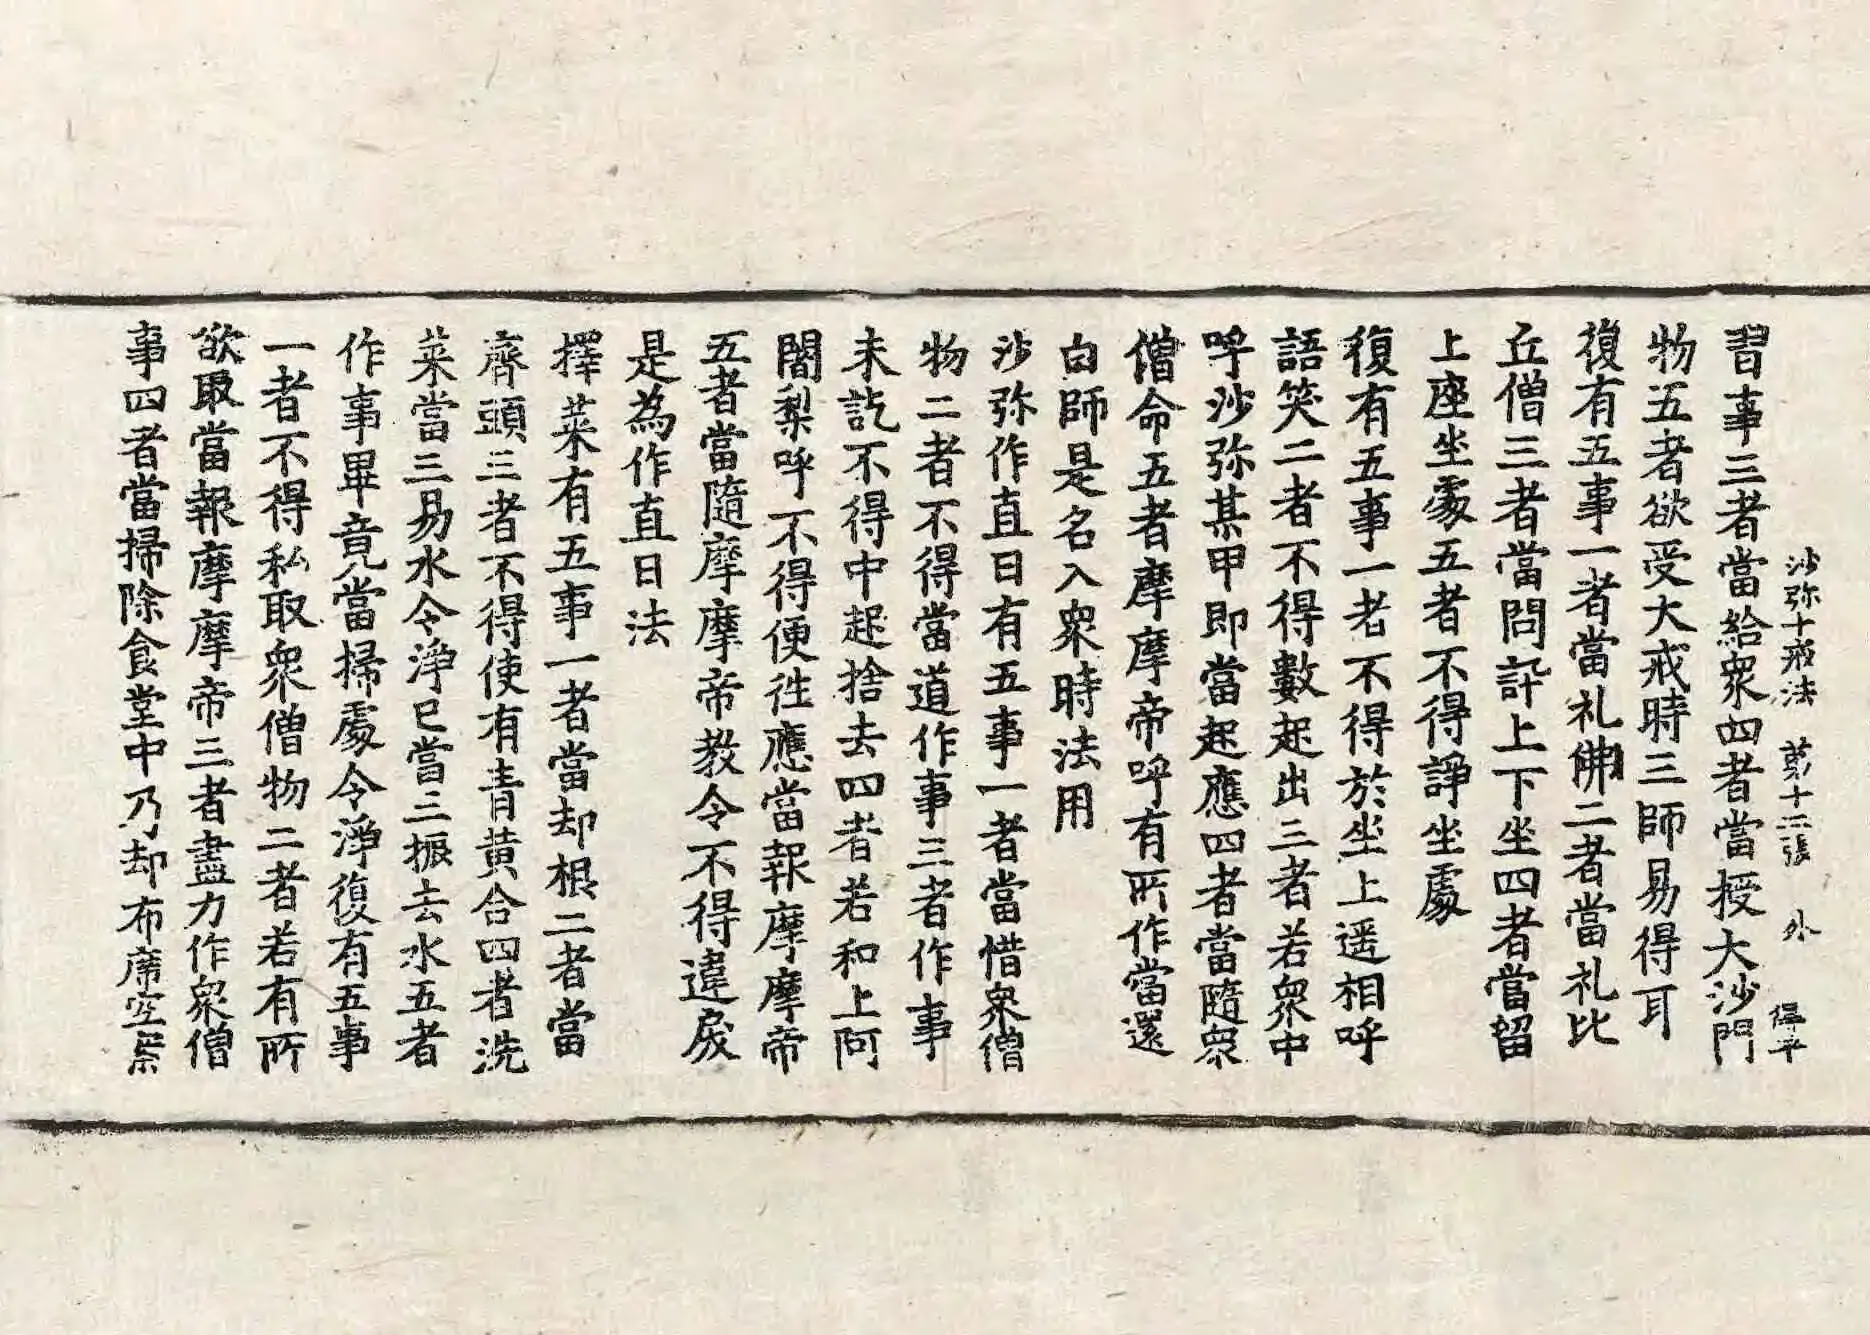 沙弥十戒法 苐十二張 外
習事三者當給衆四者當授大沙門
物五者欲受大戒時三師易得耳
復有五事一者當礼佛二者當礼比
丘僧三者當問訊上下坐四者當留
上座坐處五者不得諍坐處
復有五事一者不得於坐上遥相呼
語笑二者不得數起出三者若衆中
呼沙弥某甲即當起應四者當隨衆
僧命五者摩摩帝呼有所作當還
白師是名入衆時法用
沙弥作直日有五事一者當惜衆僧
物二者不得當道作事三者作事
未訖不得中起捨去四者若和上阿
闍梨呼不得便徃應當報摩摩帝
五者當隨摩摩帝教令不得違戾
是為作直日法
擇菜有五事一者當却根二者當
齊頭三者不得使有青黄合四者洗
菜當三易水令淨已當三振去水五者
作事畢竟當掃處令淨復有五事
一者不得私取衆僧物二者若有所
欲取當報摩摩帝三者盡力作衆僧
事四者當掃除食堂中乃却布席空